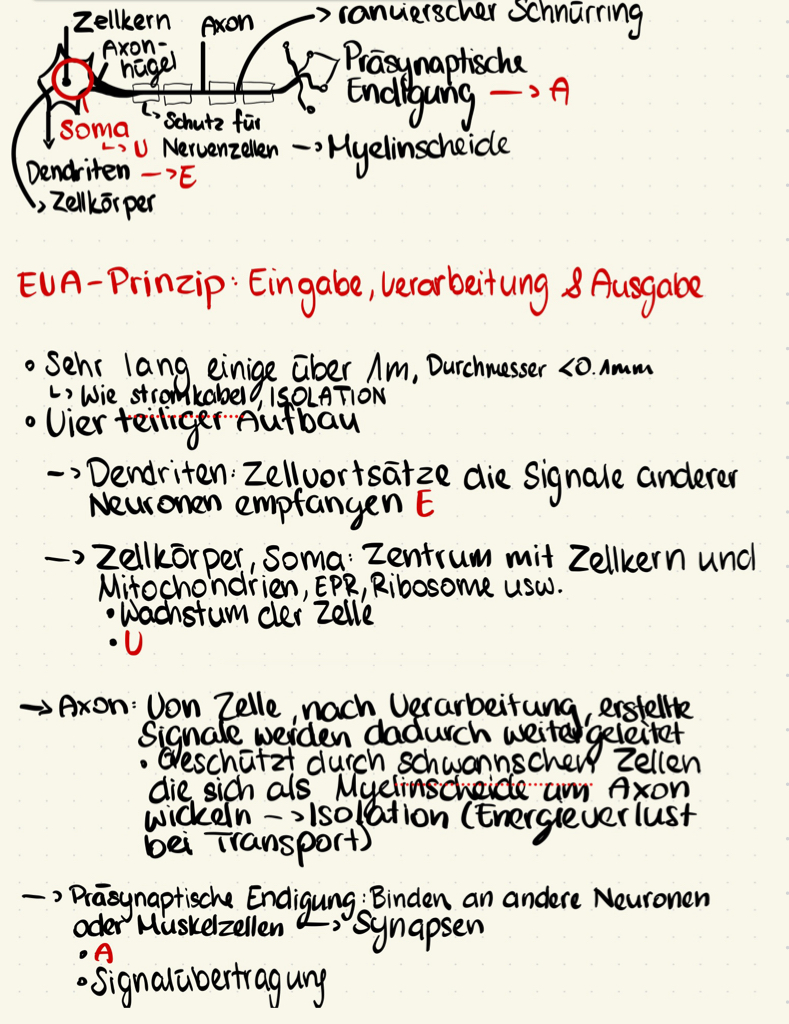 Zellkern
Axon-
hügel
Axon
-> ranvierscher Schnürring
Präsynaptische
Endigung -> A
Soma
↳ V
↳ Schutz für
Nervenzellen -> Myelinscheide
Dendriten -> E
-> Zellkörper
EVA-Prinzip: Eingabe, Verarbeitung & Ausgabe
• Sehr lang einige über 1m, Durchmesser <0.1mm
↳ Wie stromkabel, ISOLATION
• Vier teiliger Aufbau
-> Dendriten: Zellvortsätze die Signale anderer
Neuronen empfangen E
-> Zellkörper, Soma: Zentrum mit Zellkern und
Mitochondrien, EPR, Ribosome usw.
• Wachstum der Zelle
• V
-> Axon: Von Zelle, nach Verarbeitung, erstellte
Signale werden dadurch weitergeleitet
• Geschützt durch schwannschen Zellen
die sich als Myelinscheide um Axon
wickeln -> Isolation (Energieverlust
bei Transport)
-> Präsynaptische Endigung: Binden an andere Neuronen
oder Muskelzellen ↳ Synapsen
• A
• Signalübertragung